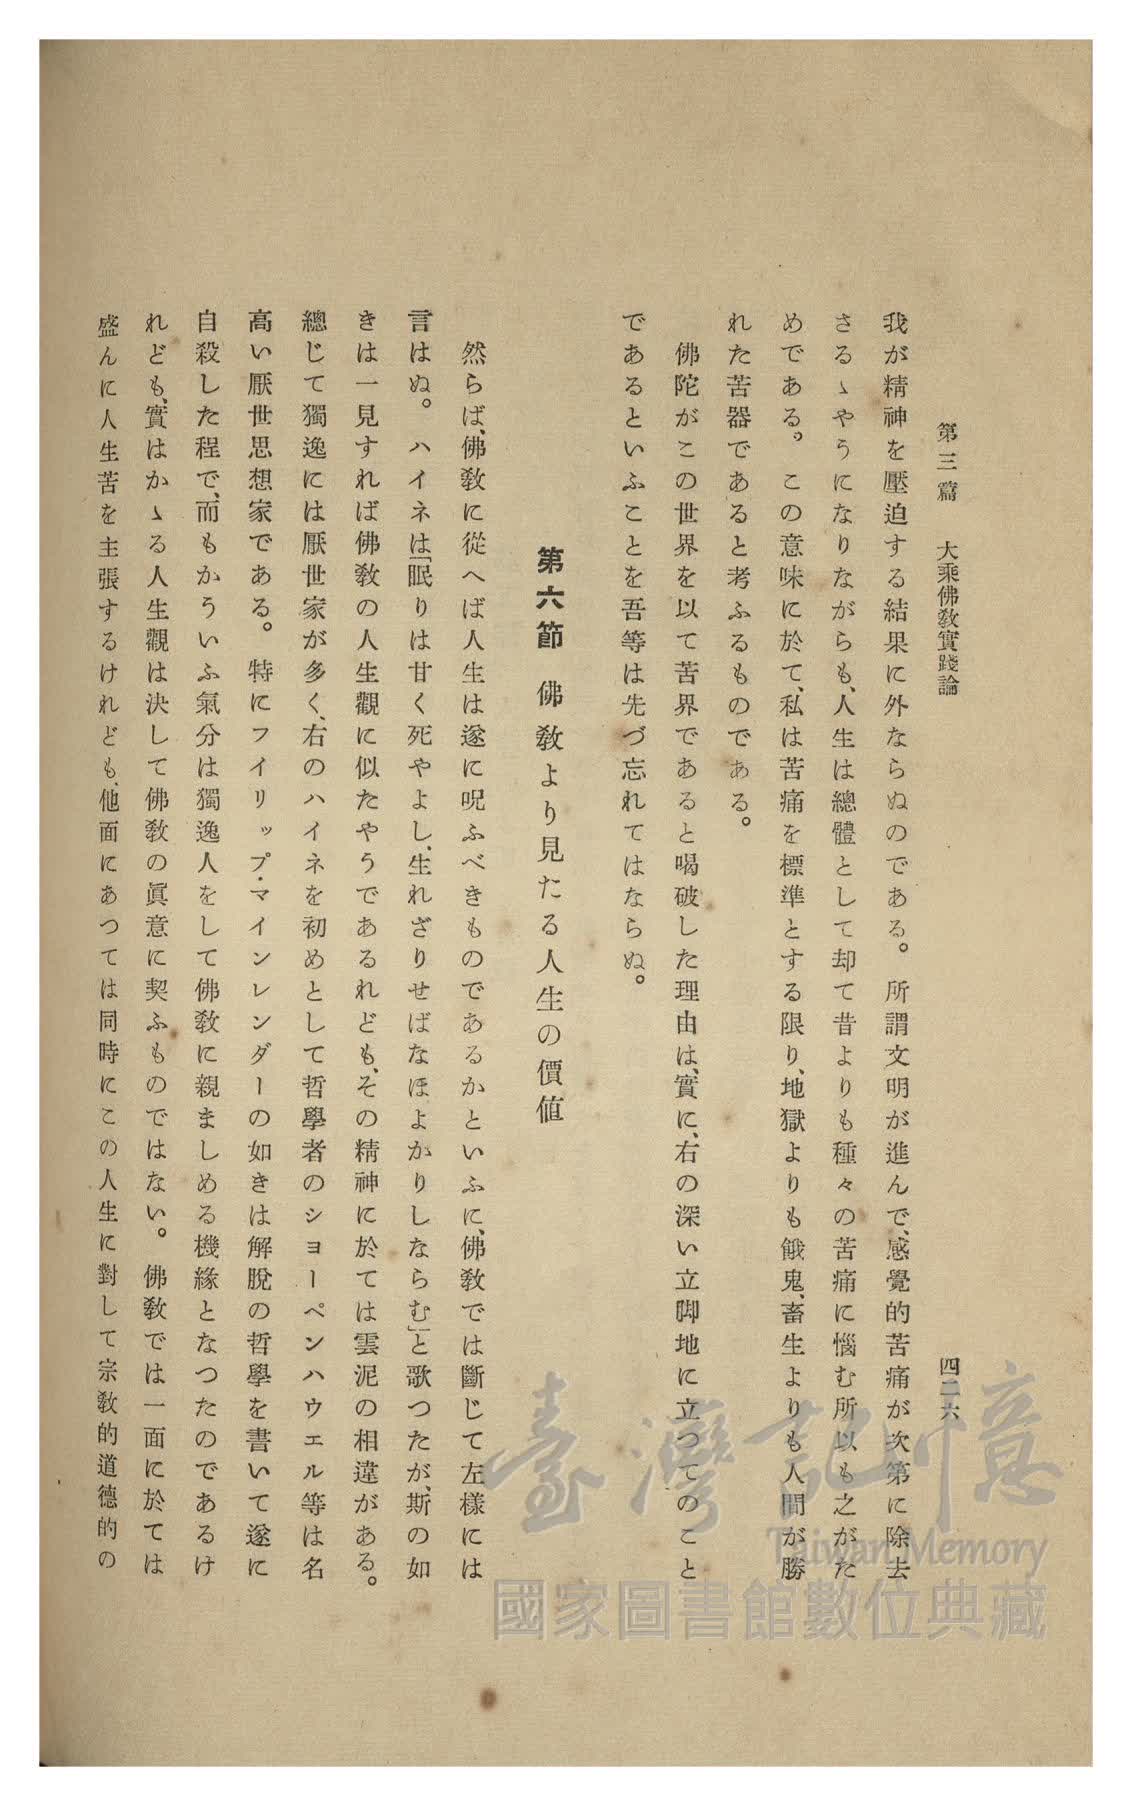 第三篇　大乘佛敎實踐論　四二六
我が精神を壓迫する結果に外ならぬのである。所謂文明が進んで、感覺的苦痛が次第に除去
さるゝやうになりながらも、人生は總體として却て昔よりも種々の苦痛に惱む所以も之がた
めである。この意味に於て、私は苦痛を標準とする限り、地獄よりも餓鬼、畜生よりも人間が勝
れた苦器であると考ふるものである。
佛陀がこの世界を以て苦界であると喝破した理由は、實に、右の深い立脚地に立つてのこと
であるといふことを吾等は先づ忘れてはならぬ。
第六節　佛敎より見たる人生の價値
然らば、佛敎に從へば人生は遂に呪ふべきものであるかといふに、佛敎では斷じて左樣には
言はぬ。ハイネは「眠りは甘く死やよし、生れざりせばなほよかりしならむ」と歌つたが、斯の如
きは一見すれば佛敎の人生觀に似たやうであるれども、その精神に於ては雲泥の相違がある。
總じて獨逸には厭世家が多く、右のハイネを初めとして哲學者のショーペンハウエル等は名
高い厭世思想家である。特にフイリップ・マインレンダーの如きは解脫の哲學を書いて遂に
自殺した程で、而もかういふ氣分は獨逸人をして佛敎に親ましめる機緣となつたのであるけ
れども、實はかゝる人生觀は決して佛敎の眞意に契ふものではない。佛敎では一面に於ては
盛んに人生苦を主張するけれども、他面にあつては同時にこの人生に對して宗敎的道德的の
臺灣記憶
Taiwan Memory
國家圖書館數位典藏